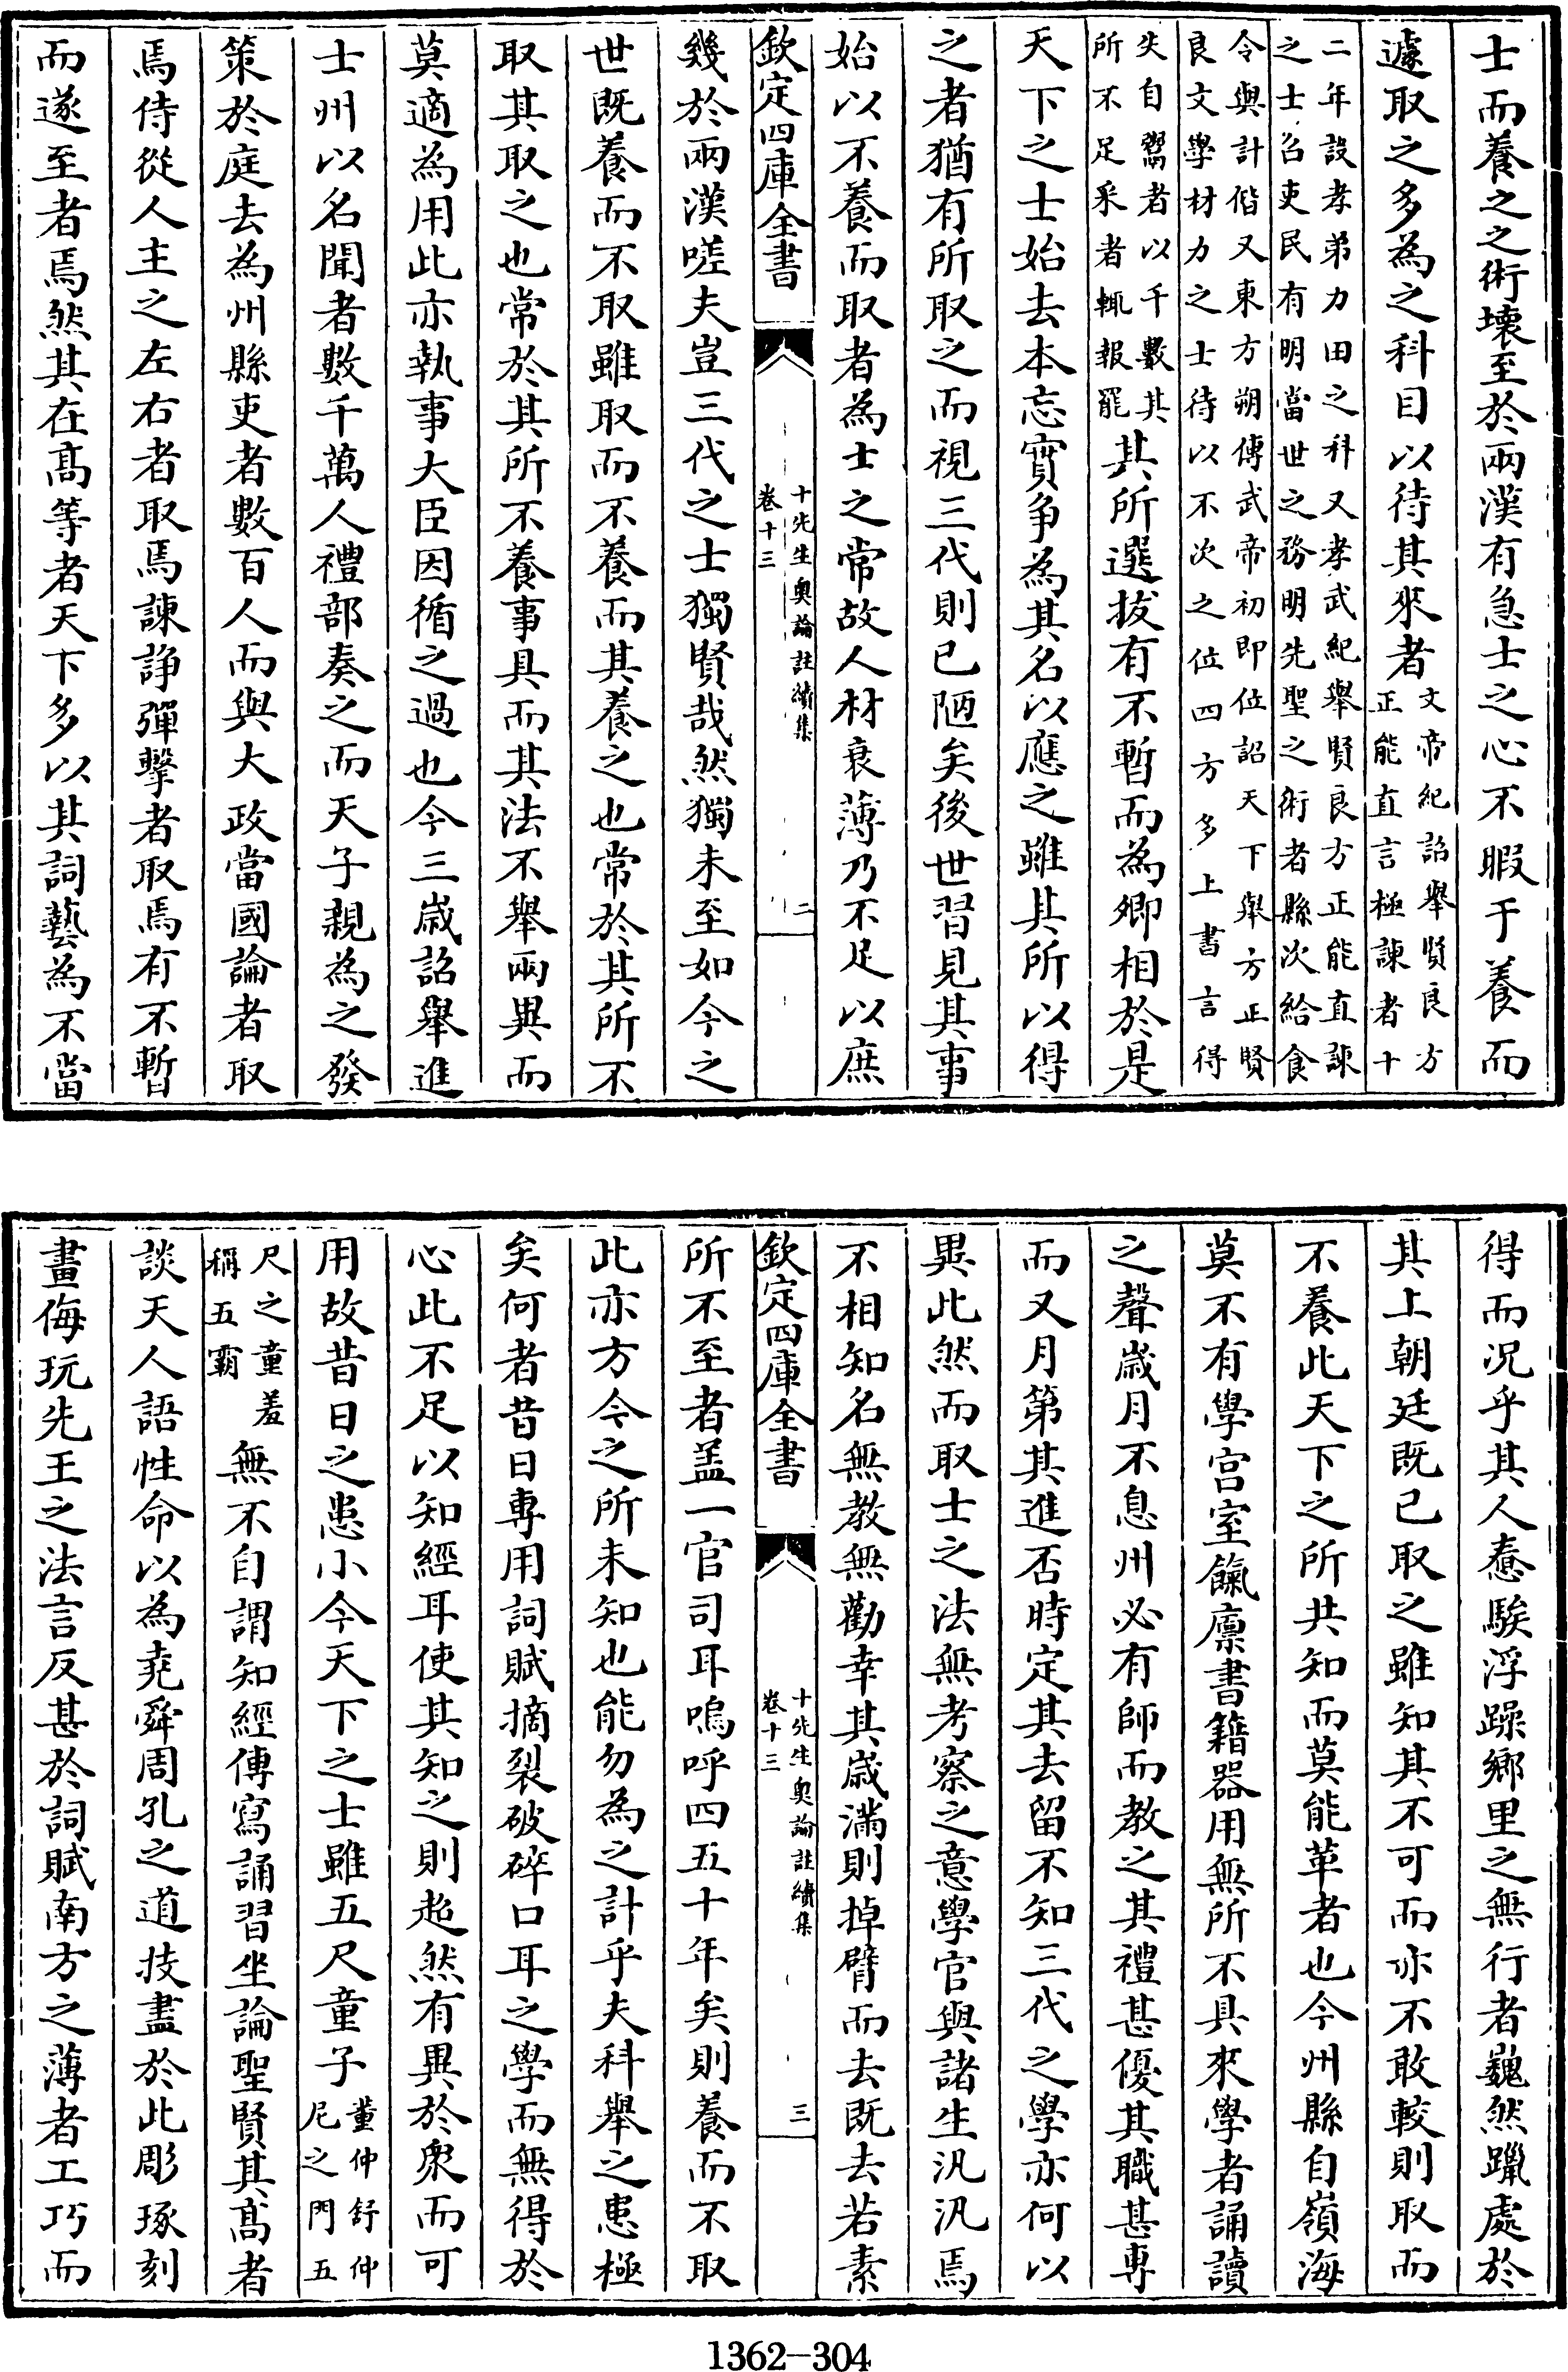 士而養之之術壊至於兩漢有急士之心不暇于養而
遽取之多為之科目以待其來者文帝紀詔舉賢良方正能直言極諫者十
二年設孝弟力田之科又孝武紀舉賢良方正能直諫之士召吏民有明當世之務明先聖之術者縣次給食
令與計偕又東方朔傳武帝初即位詔天下舉方正賢良文學材力之士待以不次之位四方多上書言得
失自鬻者以千數其所不足采者輒報罷其所選拔有不暫而為卿相於是
天下之士始去本忘實争為其名以應之雖其所以得
之者猶有所取之而視三代則已陋矣後世習見其事
始以不養而取者為士之常故人材衰薄乃不足以庶
欽定四庫全書
十先生奥論註續集
卷十三
二
幾於兩漢嗟夫豈三代之士獨賢哉然獨未至如今之
世既養而不取雖取而不養而其養之也常於其所不
取其取之也常於其所不養事具而其法不舉兩異而
莫適為用此亦執事大臣因循之過也今三嵗詔舉進
士州以名聞者數千萬人禮部奏之而天子親為之發
策於庭去為州縣吏者數百人而與大政當國論者取
焉侍從人主之左右者取焉諫諍彈擊者取焉有不暫
而遂至者焉然其在髙等者天下多以其詞藝為不當
得而况乎其人惷騃浮躁鄉里之無行者巍然躐處於
其上朝廷既已取之雖知其不可而亦不敢較則取而
不養此天下之所共知而莫能革者也今州縣自嶺海
莫不有學宫室餼廪書籍器用無所不具來學者誦讀
之聲嵗月不息州必有師而教之其禮甚優其職甚専
而又月第其進否時定其去留不知三代之學亦何以
異此然而取士之法無考察之意學官與諸生汎汎焉
不相知名無教無勸幸其嵗滿則掉臂而去既去若素
欽定四庫全書
十先生奥論註續集
卷十三
三
所不至者盖一官司耳嗚呼四五十年矣則養而不取
此亦方今之所未知也能勿為之計乎夫科舉之患極
矣何者昔日専用詞賦摘裂破碎口耳之學而無得於
心此不足以知經耳使其知之則超然有異於衆而可
用故昔日之患小今天下之士雖五尺童子董仲舒仲尼之門五
尺之童羞稱五霸無不自謂知經傳寫誦習坐論聖賢其髙者
談天人語性命以為堯舜周孔之道技盡於此彫琢刻
畫侮玩先王之法言反甚於詞賦南方之薄者工巧而
1362-304